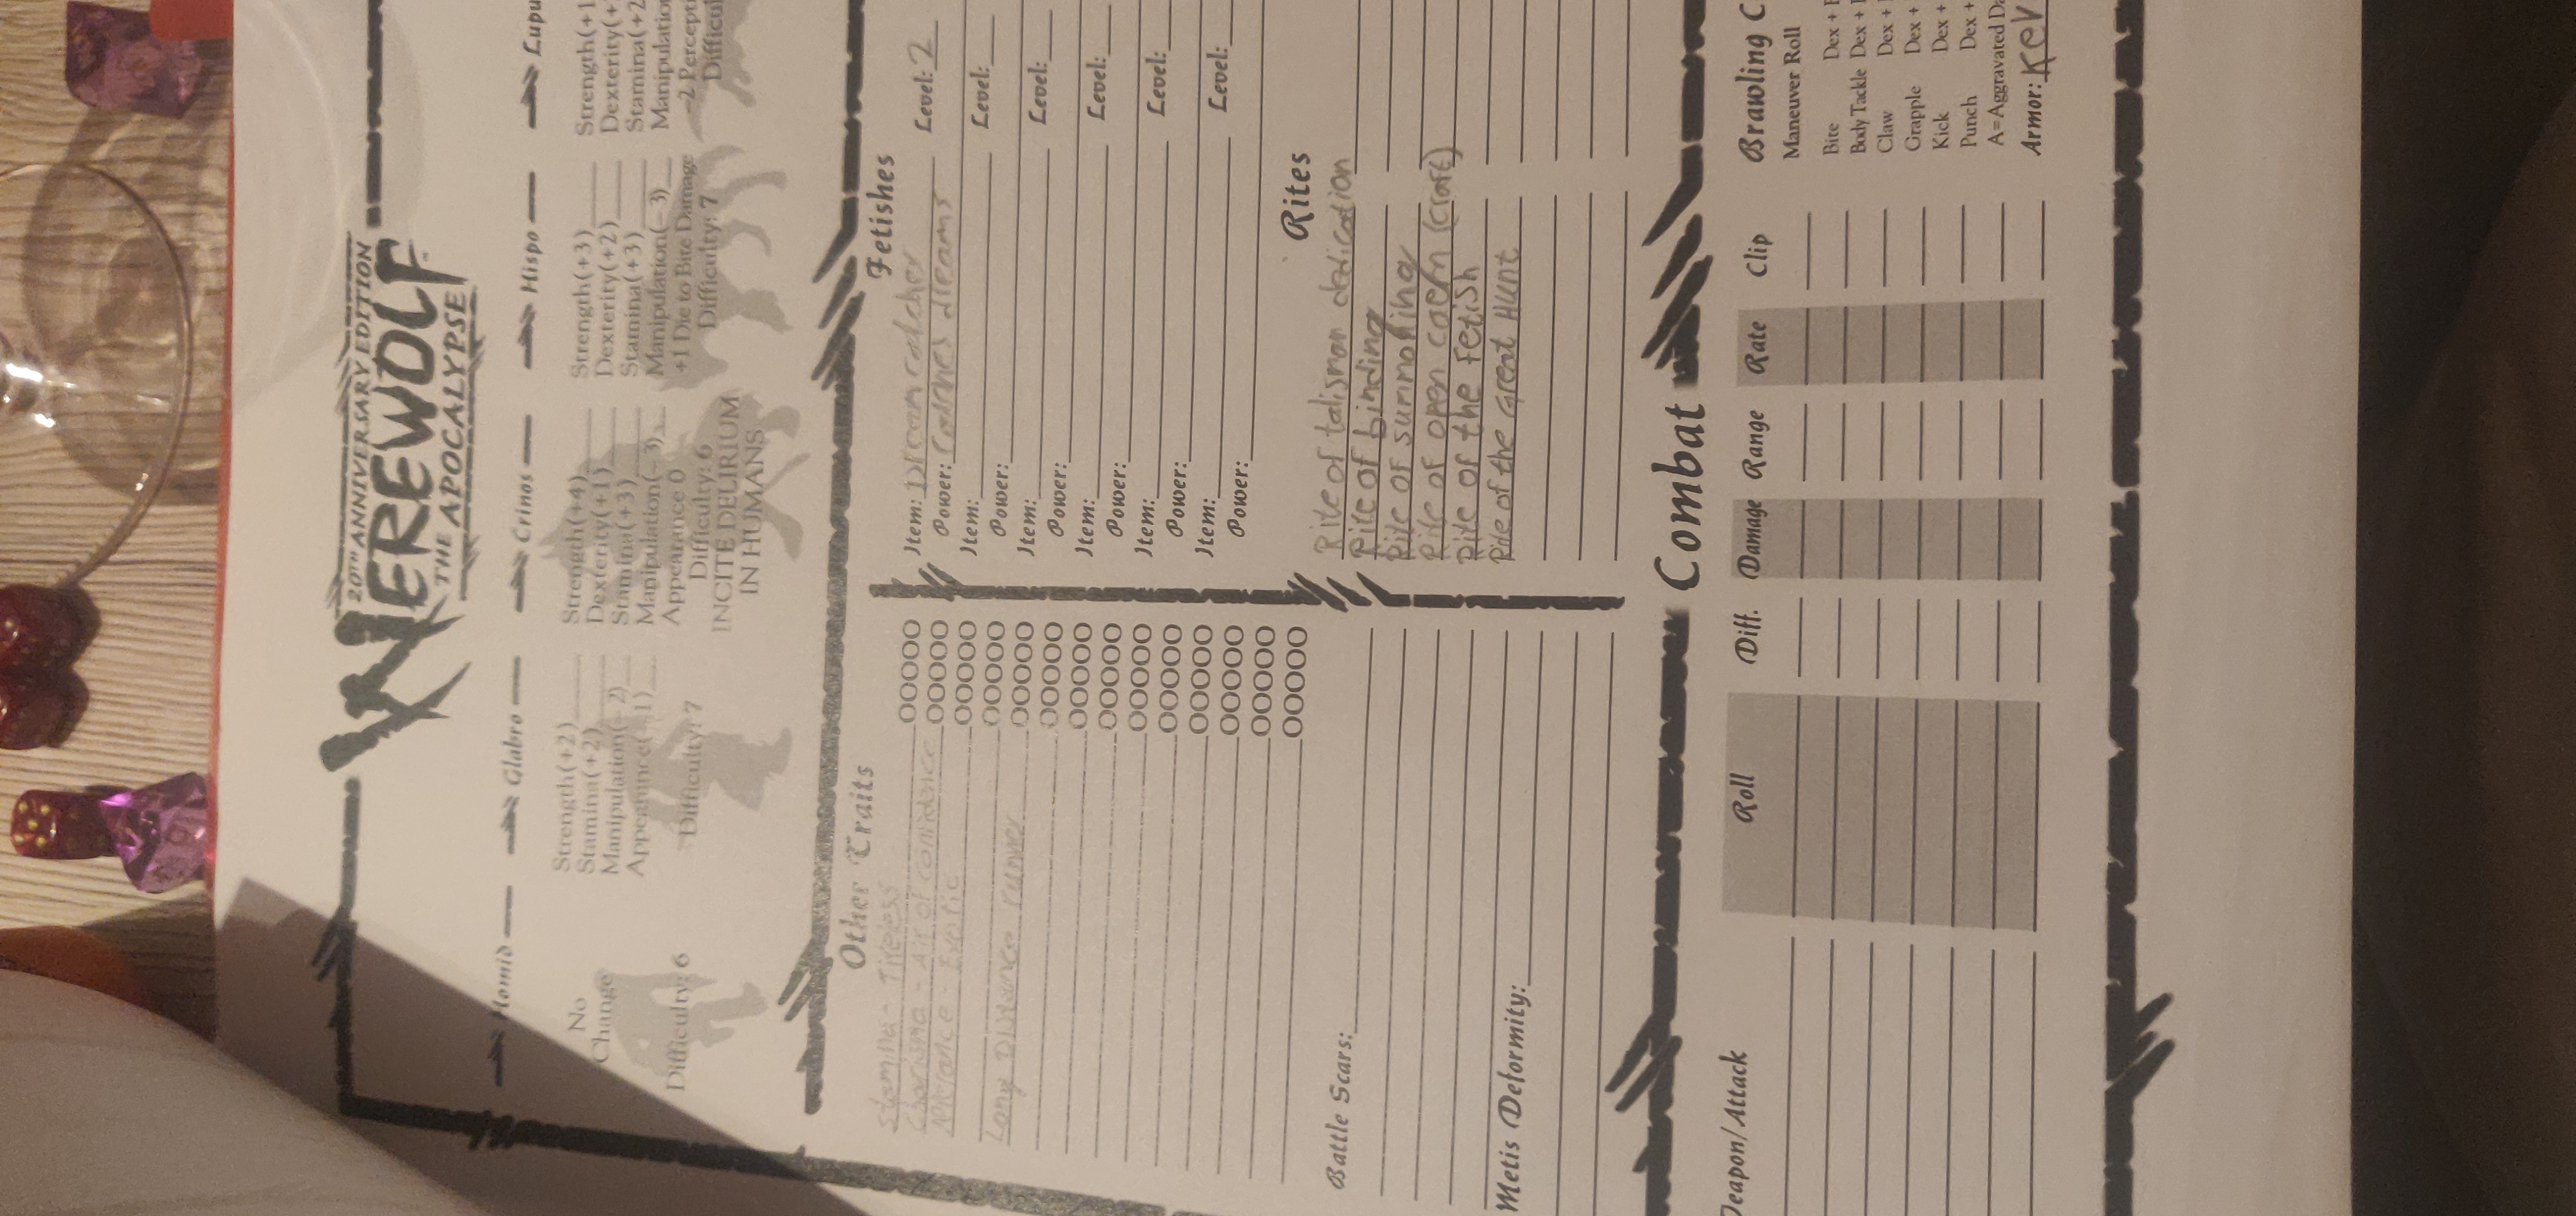 20TH ANNIVERSARY EDITION
WEREWOLF
THE APOCALYPSE
Homid
No
Change
Difficulty: 6
Glabro
Strength(+2)
Stamina(+2)
Manipulation(-2)
Appearance(-1)
Difficulty: 7
Crinos
Strength(+4)
Dexterity(+1)
Stamina(+3)
Manipulation(-3)
Appearance 0
Difficulty: 6
INCITE DELIRIUM
IN HUMANS
Hispo
Strength(+3)
Dexterity(+2)
Stamina(+3)
Manipulation(-3)
+1 Die to Bite Damage
Difficulty: 7
Lupu
Strength(+1
Dexterity(+
Stamina(+2
Manipulatio
-2 Percepti
Difficul
Other Traits
Stamina - Tireless
Charisma - Air of confidence
- Exotic
Long Distance runner
Battle Scars:
Metis Deformity:
Fetishes
Item: Dream catcher Level: 2
Power: Catches dreams
Item: Level:
Power:
Item: Level:
Power:
Item: Level:
Power:
Item: Level:
Power:
Item: Level:
Power:
Rites
Rite of talisman dedication
Rite of binding
Rite of summoning
Rite of open caern (craft)
Rite of the Fetish
Rite of the Great Hunt
Combat
eapon/Attack Roll Diff. Damage Range Rate Clip
Brawling C
Maneuver Roll
Bite Dex + B
Body Tackle Dex +
Claw Dex +
Grapple Dex +
Kick Dex +
Punch Dex +
A=Aggravated Da
Armor: Kev